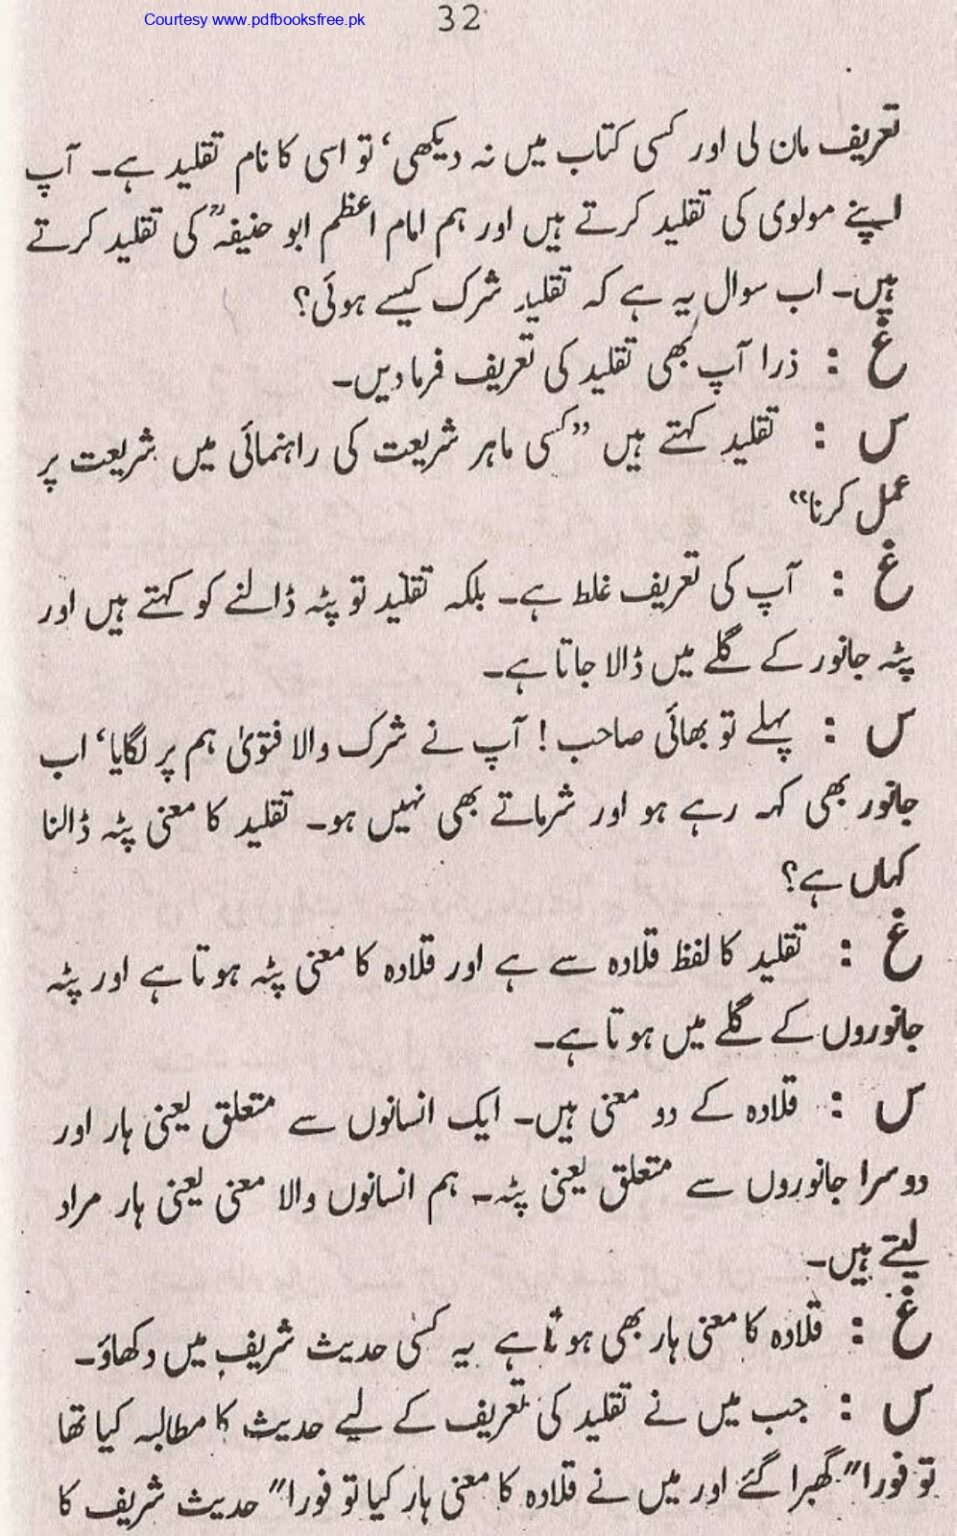 Courtesy www.pdfbooksfree.pk
32
تعریف مان لی اور کسی کتاب میں نہ دیکھی، تو اسی کا نام تقلید ہے۔ آپ
اپنے مولوی کی تقلید کرتے ہیں اور ہم امام اعظم ابو حنیفہؒ کی تقلید کرتے
ہیں۔ اب سوال یہ ہے کہ تقلید شرک کیسے ہوئی؟
غ : ذرا آپ بھی تقلید کی تعریف فرما دیں۔
س : تقلید کہتے ہیں "کسی ماہر شریعت کی راہنمائی میں شریعت پر
عمل کرنا"
غ : آپ کی تعریف غلط ہے۔ بلکہ تقلید تو پٹہ ڈالنے کو کہتے ہیں اور
پٹہ جانور کے گلے میں ڈالا جاتا ہے۔
س : پہلے تو بھائی صاحب! آپ نے شرک والا فتویٰ ہم پر لگایا، اب
جانور بھی کہہ رہے ہو اور شرماتے بھی نہیں ہو۔ تقلید کا معنی پٹہ ڈالنا
کہاں ہے؟
غ : تقلید کا لفظ قلادہ سے ہے اور قلادہ کا معنی پٹہ ہوتا ہے اور پٹہ
جانوروں کے گلے میں ہوتا ہے۔
س : قلادہ کے دو معنی ہیں۔ ایک انسانوں سے متعلق یعنی ہار اور
دوسرا جانوروں سے متعلق یعنی پٹہ۔ ہم انسانوں والا معنی یعنی ہار مراد
لیتے ہیں۔
غ : قلادہ کا معنی ہار بھی ہوتا ہے یہ کسی حدیث شریف میں دکھاؤ۔
س : جب میں نے تقلید کی تعریف کے لیے حدیث کا مطالبہ کیا تھا
تو فورا" گھبرا گئے اور میں نے قلادہ کا معنی ہار کیا تو فورا" حدیث شریف کا